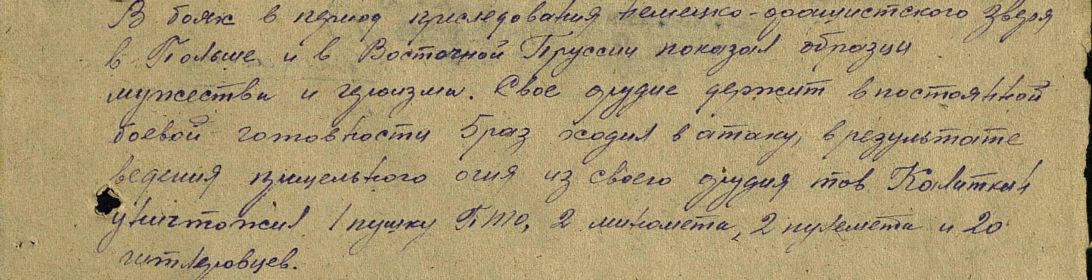 В боях в период приследования немецко-фашистского зверя
в Польше и в Восточной Пруссии показал образцы
мужества и героизма. Свое орудие держит в постоянной
боевой готовности 5 раз ходил в атаку, в результате
ведения прицельного огня из своего орудия тов. Калиткин
уничтожил 1 пушку ПТО, 2 миномета, 2 пулемета и 20
гитлеровцев.